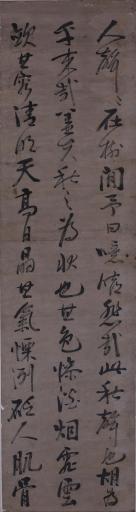 人聲〻在樹間予曰噫嘻悲哉此秋聲也胡為
乎来哉蓋夫秋之為狀也其色慘淡烟霏雲
斂其容清明天高日晶其氣慄冽砭人肌骨